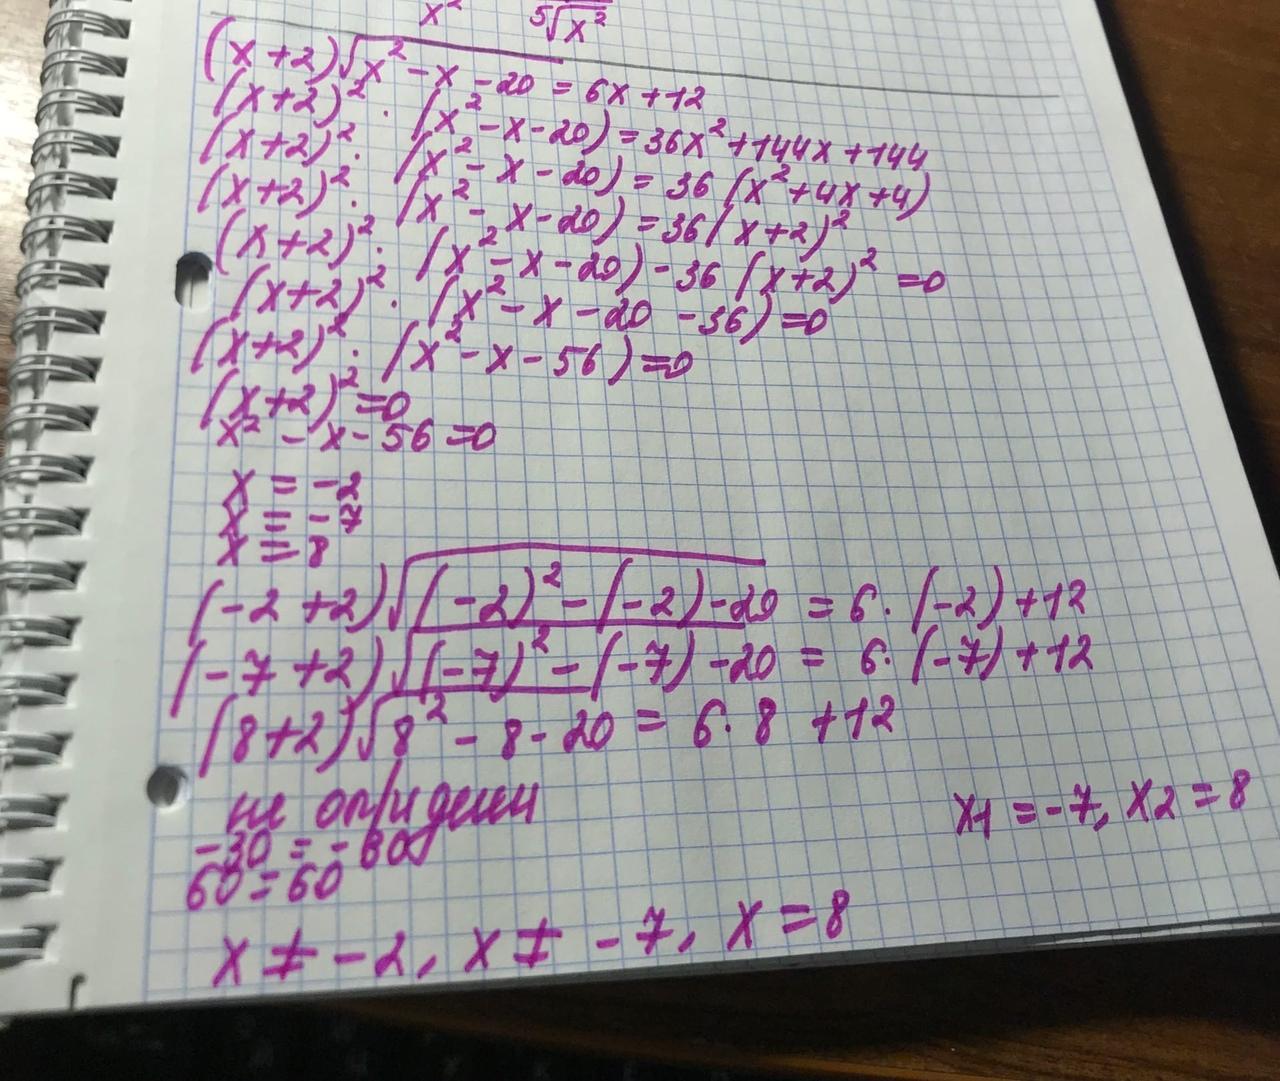 x² ⁵√x²
(x+2)√x²-x-20 = 6x+12
(x+2)² · (x²-x-20) = 36x²+144x+144
(x+2)² · (x²-x-20) = 36(x²+4x+4)
(x+2)² · (x²-x-20) = 36(x+2)²
(x+2)² · (x²-x-20) - 36(x+2)² = 0
(x+2)² · (x²-x-20-36) = 0
(x+2)² · (x²-x-56) = 0
(x+2)² = 0
x²-x-56 = 0
x = -2
x = -7
x = 8
(-2+2)√(-2)²-(-2)-20 = 6·(-2)+12
(-7+2)√(-7)²-(-7)-20 = 6·(-7)+12
(8+2)√8²-8-20 = 6·8+12
не
-30 = -30
60 = 60
x₁ = -7, x₂ = 8
x ≠ -2, x ≠ -7, x = 8